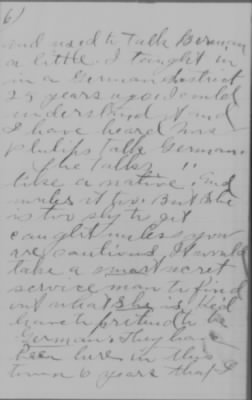 6)
and used to talk German
a little. I taught in
in a German district
25 years ago I could
understand it and
I have heard Mrs
Philips talk German.
She talks "
like a native. and
writes it too But she
is too sly to get
caught unless you
are cautious, it would
take a smart secret
service man to find
out what she is, He'd
have to pretend to be
German. They have
been here in this
town 6 years that I